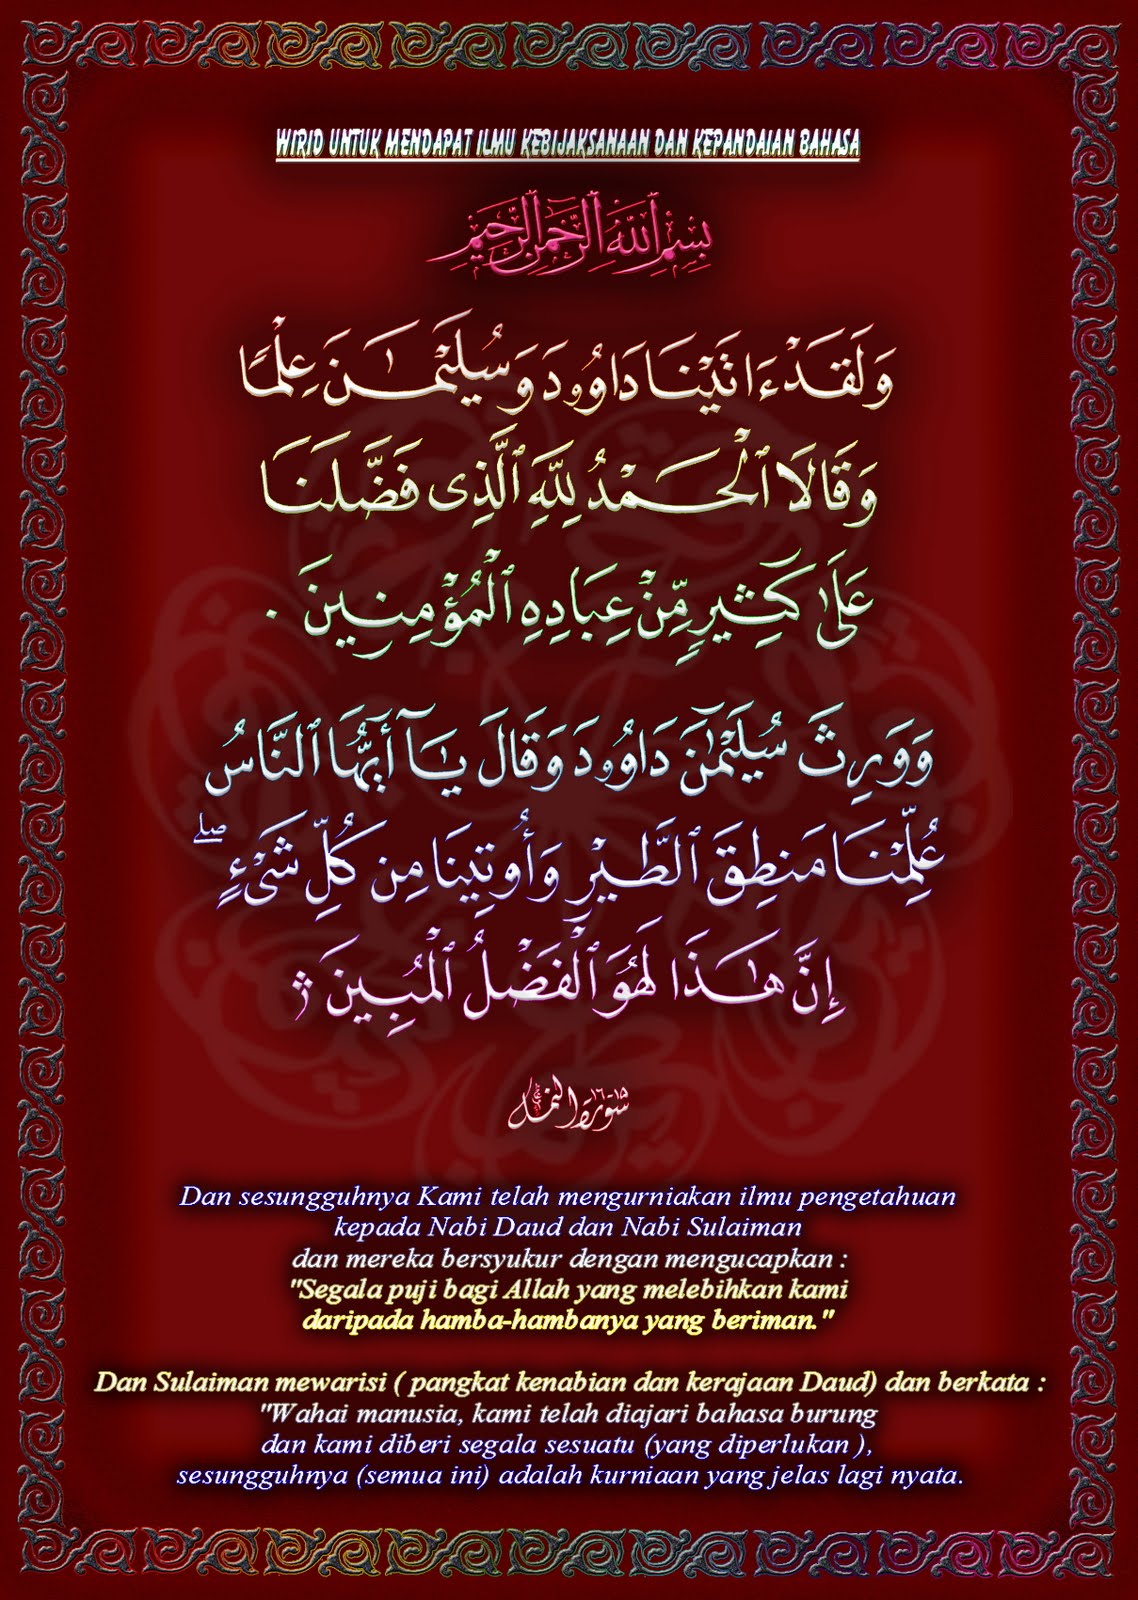 WIRID UNTUK MENDAPAT ILMU KEBIJAKSANAAN DAN KEPANDAIAN BAHASA
بِسْمِ ٱللَّهِ ٱلرَّحْمَٰنِ ٱلرَّحِيمِ
وَلَقَدْ ءَاتَيْنَا دَاوُۥدَ وَسُلَيْمَـٰنَ عِلْمًا
وَقَالَا ٱلْحَمْدُ لِلَّهِ ٱلَّذِى فَضَّلَنَا
عَلَىٰ كَثِيرٍ مِّنْ عِبَادِهِ ٱلْمُؤْمِنِينَ ٠
وَوَرِثَ سُلَيْمَـٰنُ دَاوُۥدَ وَقَالَ يَـٰٓأَيُّهَا ٱلنَّاسُ
عُلِّمْنَا مَنطِقَ ٱلطَّيْرِ وَأُوتِينَا مِن كُلِّ شَىْءٍ ۖ
إِنَّ هَـٰذَا لَهُوَ ٱلْفَضْلُ ٱلْمُبِينَ
سورة النمل ١٥ ١٦
Dan sesungguhnya Kami telah mengurniakan ilmu pengetahuan
kepada Nabi Daud dan Nabi Sulaiman
dan mereka bersyukur dengan mengucapkan :
"Segala puji bagi Allah yang melebihkan kami
daripada hamba-hambanya yang beriman."
Dan Sulaiman mewarisi ( pangkat kenabian dan kerajaan Daud) dan berkata :
"Wahai manusia, kami telah diajari bahasa burung
dan kami diberi segala sesuatu (yang diperlukan ),
sesungguhnya (semua ini) adalah kurniaan yang jelas lagi nyata.